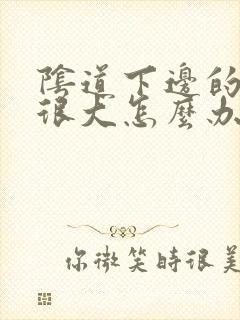 陰道下邊的
很大怎麼办
你微笑時很美